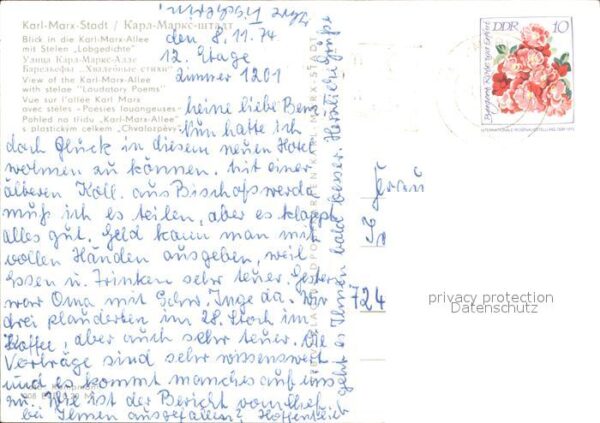 Karl-Marx-Stadt / Карл-Маркс-штадт
Blick in die Karl-Marx-Allee
mit Stelen „Lobgedichte"
Улица Карл-Маркс-Алле
Барельефы „Хвалебные стихи"
View of the Karl-Marx-Allee
with stelae "Laudatory Poems"
Vue sur l'allée Karl Marx
avec stèles «Poésies louangeuses»
Pohled na třídu „Karl-Marx-Allee"
s plastickým celkem „Chvalozpěvy"
den 8. 11. 74
12. Etage
Zimmer 1201
Meine liebe
Nun hatte ich
doch Glück in diesem neuen Hotel
wohnen zu können. Mit einer
älteren Koll. aus Bischofswerda
muß ich es teilen, aber es klappt
alles gut. Geld kann man mit
vollen Händen ausgeben, weil
Essen u. Trinken sehr teuer. Gestern
war Oma mit Schw. Inge da. Wir
drei plauderten im 28. Stock im
Kaffee, aber auch sehr teuer. Die
Vorträge sind sehr wissenswert
und es kommt manches auf uns
zu. Wie ist der Bericht vom Chef
bei Ihnen ausgefallen? Hoffentlich
geht es Ihnen bald besser. Herzliche Grüße
Ihre
DDR 10
INTERNATIONALE ROSENAUSSTELLUNG DER DDR 1972
Frau
724
privacy protection
Datenschutz